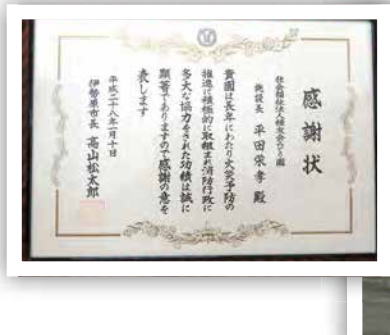 感謝状
社会福祉法人
施設長 平田栄孝 殿
貴園は長年にわたり火災予防の
推進に積極的に取組まれ消防行政に
多大な協力をされた功績は誠に
顕著でありますので感謝の意を
表します
平成二十八年一月十日
伊勢原市長 高山松太郎